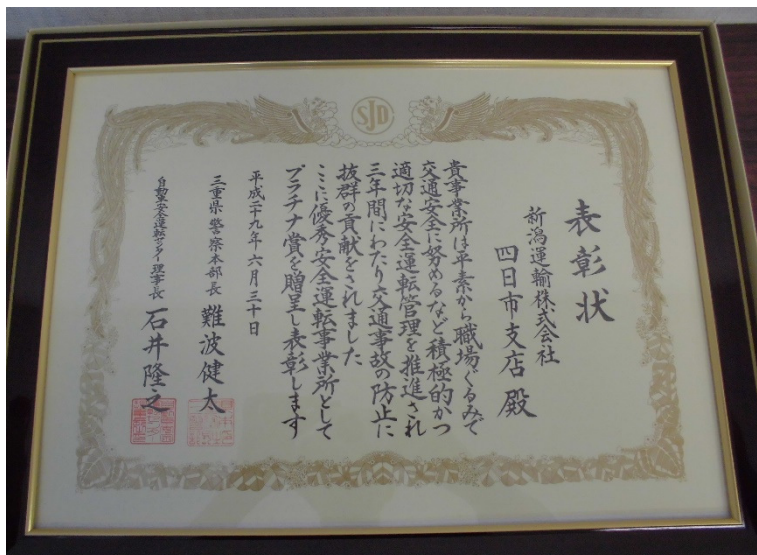 SJD
表彰状
新潟運輸株式会社
四日市支店殿
貴事業所は平素から職場ぐるみで
交通安全に努めるなど積極的かつ
適切な安全運転管理を推進され
三年間にわたり交通事故の防止に
抜群の貢献をされました
ここに優秀安全運転事業所として
プラチナ賞を贈呈し表彰します
平成二十九年六月三十日
三重県警察本部長 難波健太
自動車安全運転センター理事長 石井隆之